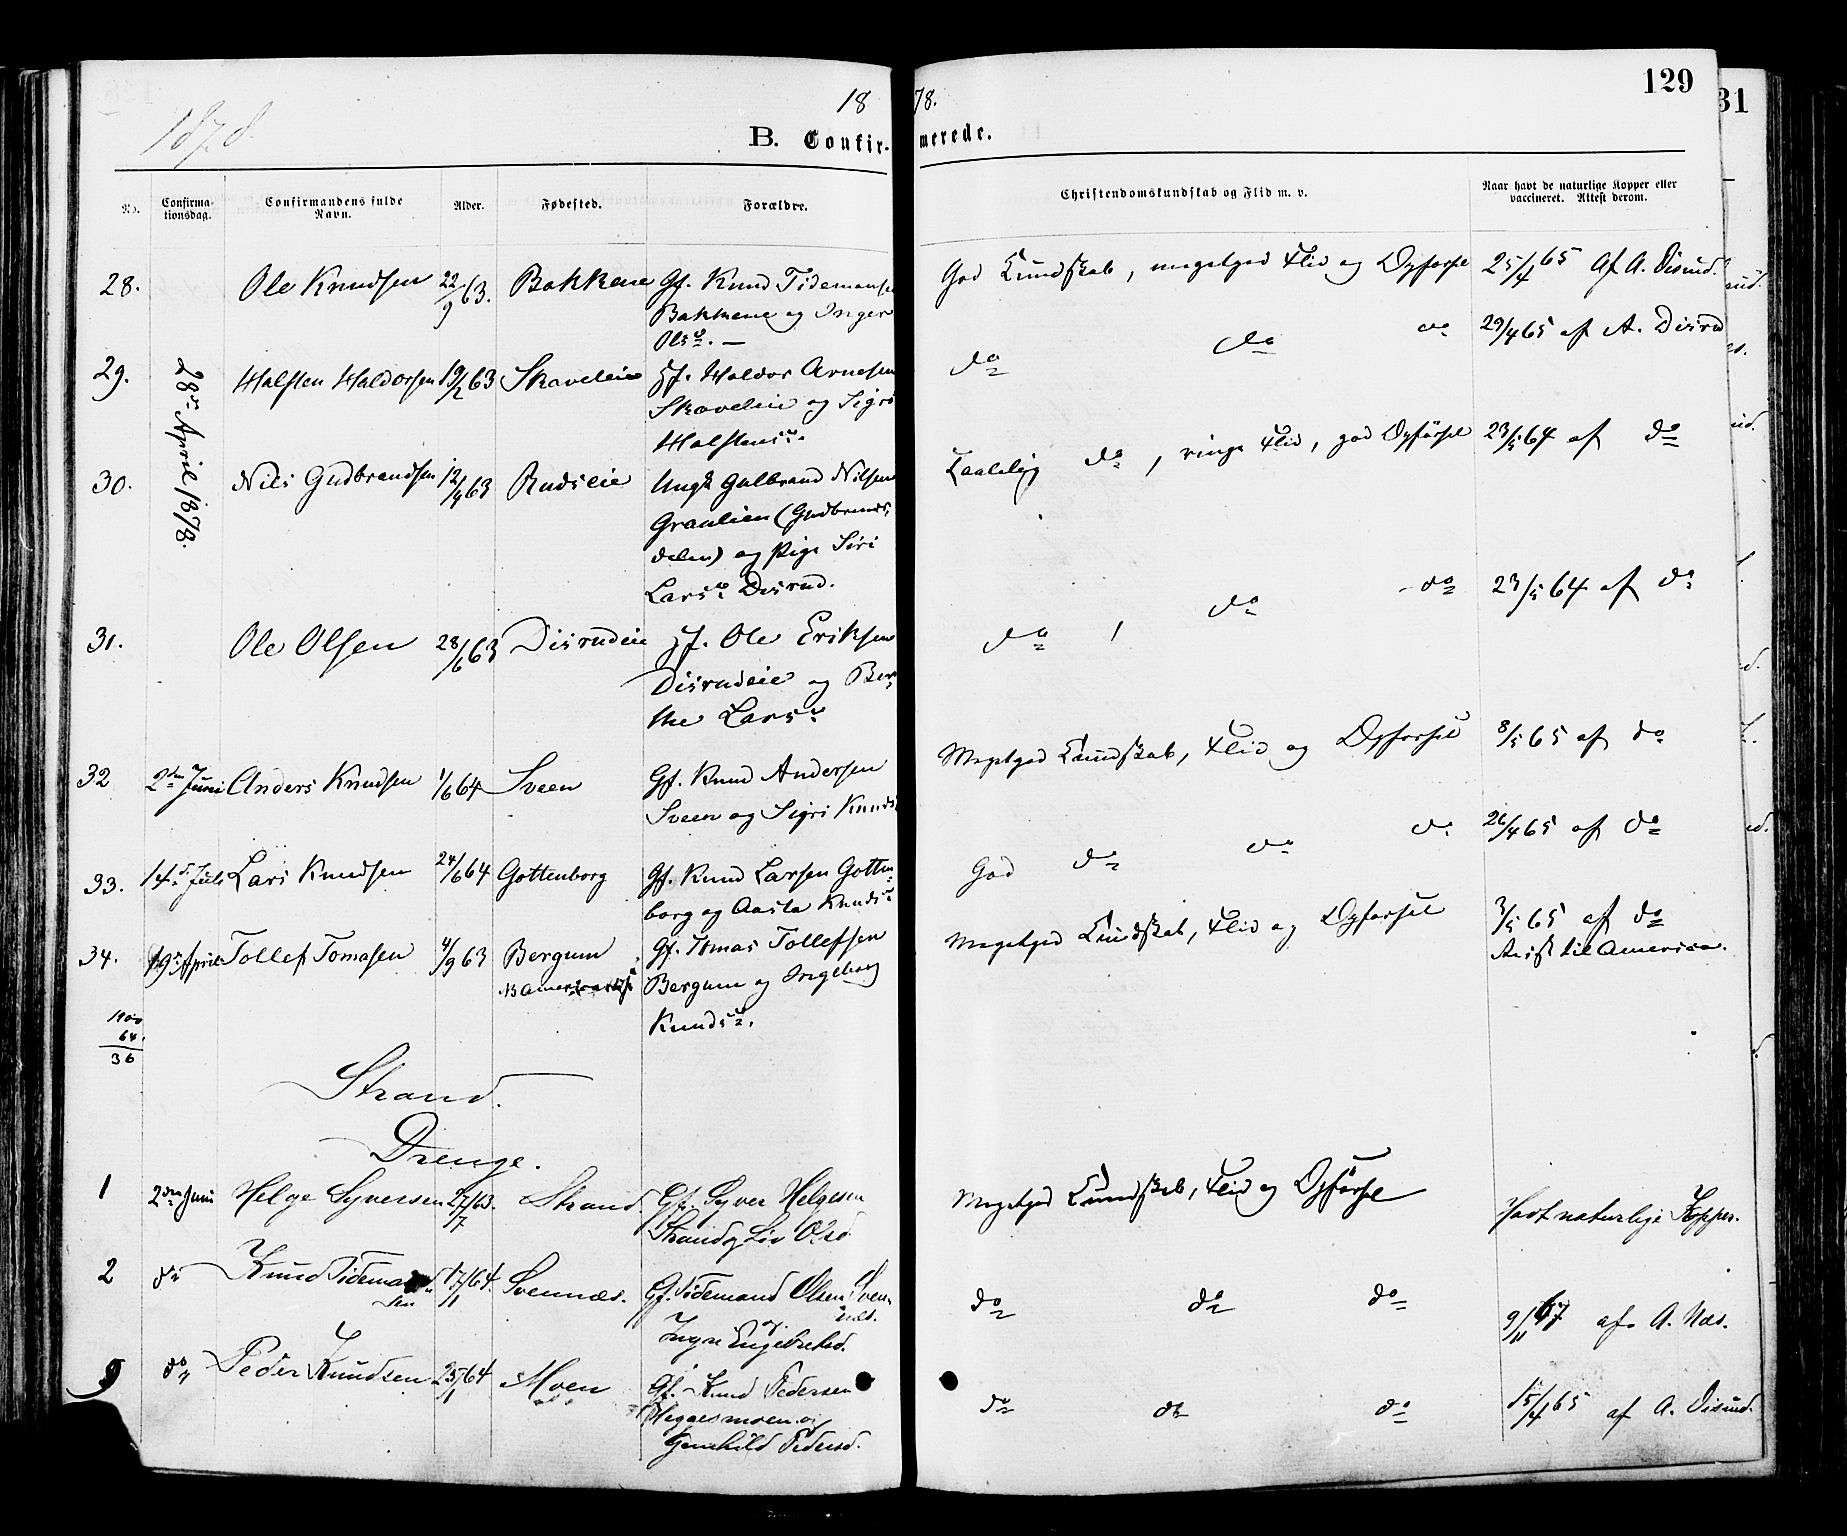 129
31
1878.
1878.
B. Confirmerede.
No. Confirmationsdag. Confirmandens fulde Navn. Alder. Fødested. Forældre. Christendomskundskab og Flid m. v. Naar havt de naturlige Kopper eller vaccineret. Attest derom.
28de April 1878.
28. Ole Knudsen 22/9 63. Bakkene Gf. Knud Tidemansen God Kundskab, megetgod Flid og Opførsel 25/4 65 af A. Disrud.
Bakkene og Inger
Olsd. —
29. Halsten Haldorsen 19/2 63 Skavelien Jf. Haldor Arnesen do do do 29/4 65 af A. Disrud
Skavelien og Sigri
Halstensd.
30. Nils Gudbrandsen 12/4 63 Rudseie Ungk Gulbrand Nilsen Taalelig do, ringe Flid, god Opførsel 23/5 64 af do
Graulien (Gudbrands-
dalen) og Pige Siri
Larsd Disrud.
31. Ole Olsen 28/6 63 Disrudeie Jf. Ole Eriksen do, do do 23/5 64 af do
Disrudeie og Ber-
the Larsd
32 2den Juni Anders Knudsen 1/6 64 Sveen Gf. Knud Andersen Megetgod Kundskab, Flid og Opførsel 8/5 65 af do
Sveen og Sigri Knudsd
33. 14de Juli Lars Knudsen 24/6 64 Gottenborg Gf. Knud Larsen Gotten- God do do do 26/4 65 af do
borg og Aasta Knudsd
34. 19de April Tollef Tomasen 4/9 63 Bergum Gf. Tomas Tollefsen Megetgod Kundskab, Flid og Opførsel 3/5 65 af do
NB Bergum og Ingeborg Reist til America.
Knudsd.
1900
64.
36
Strand.
Drenge.
1 2den Juni Helge Syversen 27/7 63. Strand. Gf. Syver Helgesen Megetgod Kundskab, Flid og Opførsel Havt naturlige Kopper.
Strand og Liv Olsd
2 do Knud Tidemandsen 17/1 64. Svennæs. Gf. Tidemand Olsen Sven- do do do 9/11 67 af A. Næs.
næs. og
Engebretsd.
3 do Peder Knudsen 25/1 64 Moen Gf. Knud Pedersen do do do 15/4 65 af A. Disrud.
Heggesmoen og
Gunhild Pedersd.